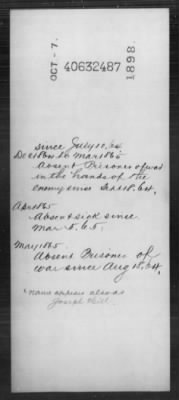 OCT - 7.
40632487
1898.
since July 11, 64
Dec 1864 to Mar 1865
Absent Prisoner of war
in the hands of the
enemy since Sept 18. 64.
Apr 1865
Absent sick since
Mar 5. 65.
May 1865
Absent Prisoner of
war since Aug 18, 64,
Name appears also as
Joseph Hill